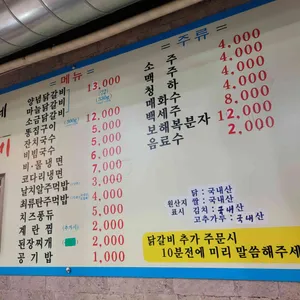 = 메뉴 =
양념닭갈비 13,000
마늘닭갈비
소금닭갈비 12,000
똥집구이
잔치국수 5,000
비빔국수 6,000
비·물냉면
코다리냉면
날치알주먹밥
최루탄주먹밥
치즈퐁듀 5,000
계란찜
된장찌개 2,000
공기밥 1,000
= 주류 =
소주 4,000
맥주 4,000
청하
매화수
백세주 8,000
보해복분자 12,000
음료수 2,000
닭 : 국내산
원산지 쌀 : 국내산
표시 김치 : 국내산
고추가루 : 국내산
닭갈비 추가 주문시
10분전에 미리 말씀해주세